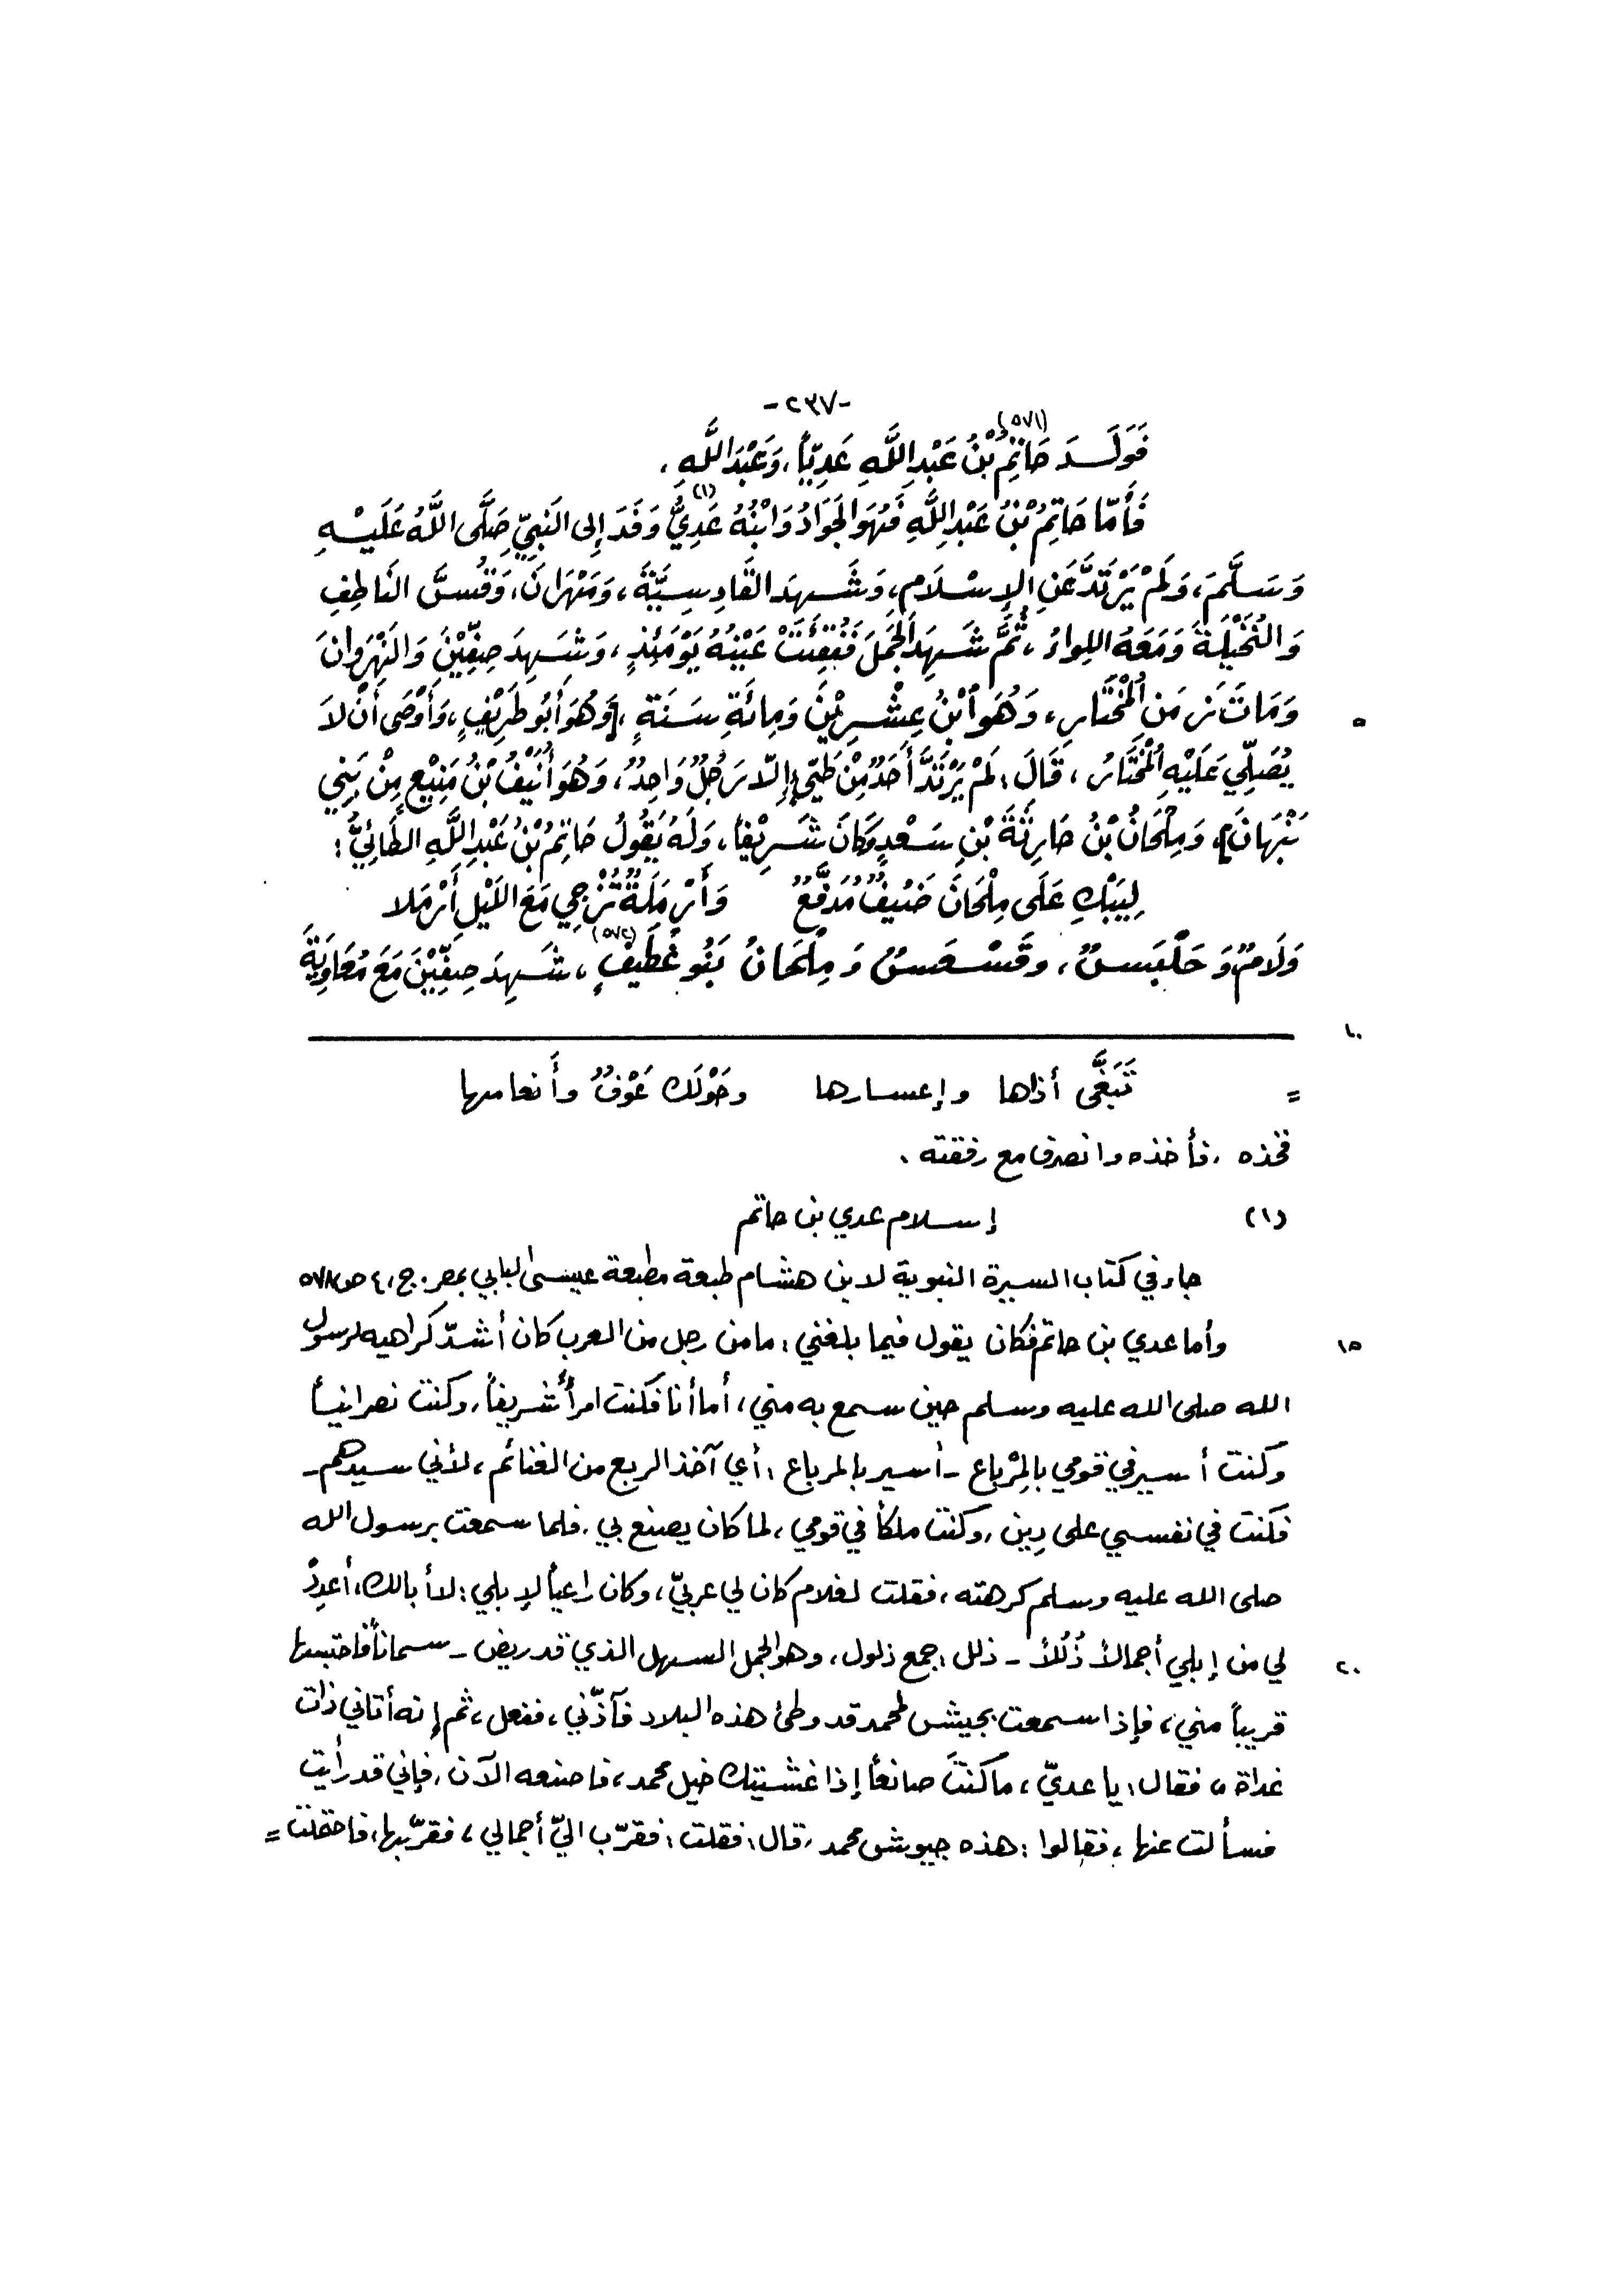 -٢٣٧-
(٥٧١)
فَوَلَـدَ حَاتِمُ بْنُ عَبْدِ اللَّهِ عَدِيّاً، وَعَبْدَ اللَّهِ،
فَأَمَّا حَاتِمُ بْنُ عَبْدِ اللَّهِ فَهُوَ الجَوَادُ وَابْنُهُ عَدِيٌّ (١) وَفَدَ إِلى النَبِيِّ صَلَّى اللَّهُ عَلَيْـهِ
وَسَلَّمَ، وَلَمْ يَرْتَدَّ عَنِ الإِسْلَامِ، وَشَـهِدَ القَادِسِيَّةَ، وَمَهْرَانَ، وَقُسَّ النَاطِفِ
وَالنُخَيْلَةَ وَمَعَهُ اللِواءُ، ثُمَّ شَـهِدَ الجَمَلَ فَفُقِئَتْ عَيْنُهُ يَوْمَئِذٍ، وَشَهِدَ صِفِّيْنَ وَالنَهْرَوانَ
وَمَاتَ زَمَنِ المُخْتَارِ، وَهُوَ ٱبْنُ عِشْـرِيْنَ وَمِائَةِ سَنَةٍ، [وَهُوَ أَبُو طَرِيْفٍ، وَأَوْصَى أَنْ لاَ
٥
يُصَلِّي عَلَيْهِ المُخْتَارُ، قَالَ: لَمْ يَرْتَدَّ أَحَدٌ مِنْ طَيِّءٍ إِلاّ رَجُلٌ وَاحِدٌ، وَهُوَ أُنَيْفُ بْنُ مَنِيْعٍ مِنْ بَنِي
نَبْهَانَ]، وَمِلْحَانُ بْنُ حَارِثَةَ بْنِ سَـعْدٍ وَكَانَ شَـرِيْفاً، وَلَهُ يَقُولُ حَاتِمُ بْنُ عَبْدِ اللَّهِ الطَائِيُّ:
لِيَبْكِ عَلَى مِلْحَانَ ضَيْفٌ مُدَفَّعٌ وَأَرْمَلَةٌ تُزْجِي مَعَ اللَيْلِ أَرْمَلا
وَلَامٌ وَحَلْبَسٌ، وَقَسْـعَسٌ وَمِلْحَانُ بَنُو غُطَيْفٍ (٥٧٢)، شَـهِدَ صِفِّيْنَ مَعَ مُعَاوِيَةَ
١٠
= تَبَغَّى أذاها وإعسـارها وحَوْلَك عَوْفٌ وأَنعامها
فخذه، فأخذه وانصرف مع رفقته.
(١) إسـلام عدي بن حاتم
جاء في كتاب السيرة النبوية لابن هشام طبعة مطبعة عيسى البابي بمصر. ج، ٤ ص ٥٧٨
وأما عدي بن حاتم فكان يقول فيما بلغني: ما من رجل من العرب كان أشدّ كراهيه لرسول
١٥
الله صلى الله عليه وسلم حين سمع به مني، أما أنا فكنت امرأً شريفاً، وكنت نصرانيـاً
وكنت أسير في قومي بالمِرْباع - أسير بالمرباع: أي آخذ الربع من الغنائم، لأني سيدهم -
فكنت في نفسي على دِين، وكنت ملكاً في قومي، لما كان يصنع بي، فلما سمعت برسول الله
صلى الله عليه وسلم كرهته، فقلت لغلام كان لي عربيّ، وكان راعياً لإبلي: لا أبالك، أعدِدْ
لي من إبلي أجمالاً ذُلُلاً - ذلل: جمع ذلول، وهو الجمل السهل الذي قد ريض - سماناً فاحتبسها
٢٠
قريباً مني، فإذا سمعت بجيش لمحمد قد وطئ هذه البلاد فآذّني، ففعل، ثم إنه أتاني ذات
غداة، فقال: يا عديّ، ما كنتَ صانعاً إذا غشيتك خيل محمد، فاصنعه الآن، فإني قد رأيت
فسألت عنها، فقالوا: هذه جيوش محمد، قال: فقلت: فقرّب اليّ أجمالي، فقرّبها، فاحتملت =